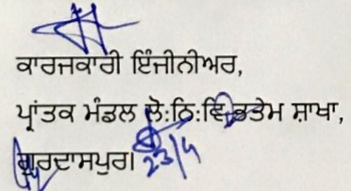 ਕਾਰਜਕਾਰੀ ਇੰਜੀਨੀਅਰ,
ਪ੍ਰਾਂਤਕ ਮੰਡਲ ਲੋ:ਨਿ:ਵਿ ਭਤੇਮ ਸ਼ਾਖਾ,
ਗੁਰਦਾਸਪੁਰ।
23/4